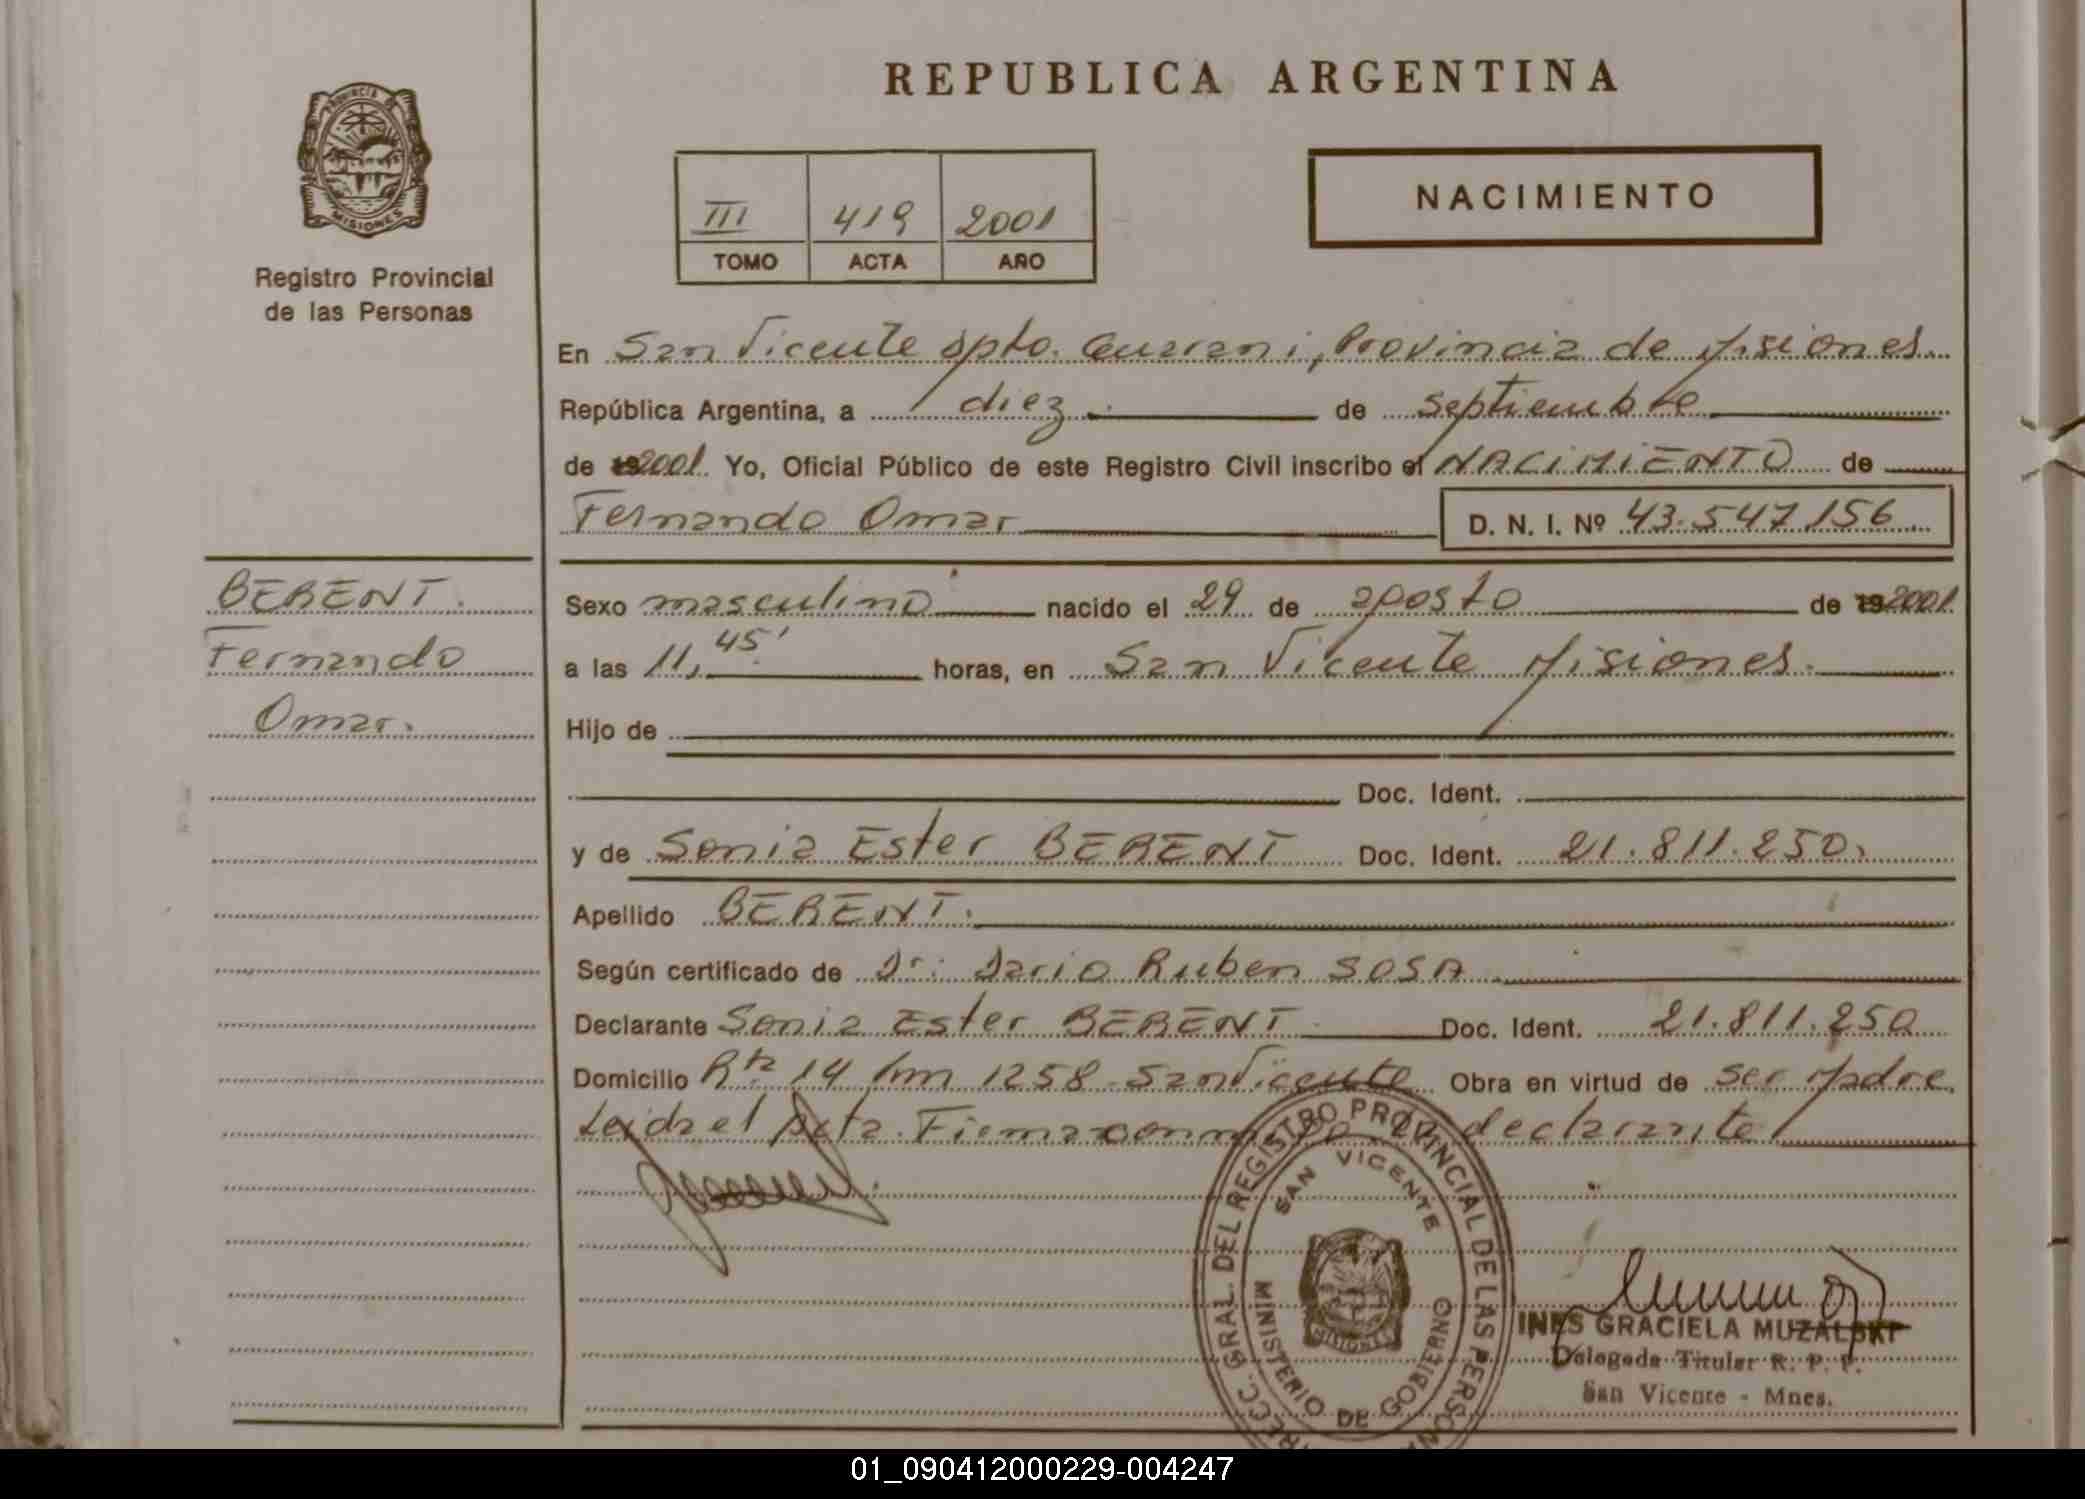 REPUBLICA ARGENTINA
PROVINCIA DE
MISIONES
Registro Provincial
de las Personas
III 419 2001
TOMO ACTA AÑO
NACIMIENTO
En San Vicente Dpto. Guarani, Provincia de Misiones.
República Argentina, a diez de septiembre
de 192001. Yo, Oficial Público de este Registro Civil inscribo el NACIMIENTO de
Fernando Omar D. N. I. Nº 43.547.156
BERENT.
Fernando
Omar.
Sexo masculino nacido el 29 de agosto de 192001.
a las 11,45' horas, en San Vicente Misiones.
Hijo de
Doc. Ident.
y de Sonia Ester BERENT Doc. Ident. 21.811.250.
Apellido BERENT.
Según certificado de Dr. Dario Ruben SOSA
Declarante Sonia Ester BERENT Doc. Ident. 21.811.250
Domicilio Rta 14 km 1258 - San Vicente Obra en virtud de ser Madre.
Leida el Acta. Firma conmigo la declarante
DIRECC. GRAL. DEL REGISTRO PROVINCIAL DE LAS PERSONAS
SAN VICENTE
MISIONES
MINISTERIO DE GOBIERNO
INES GRACIELA MUZALSKI
Delegada Titular R. P. P.
San Vicente - Mnes.
01_090412000229-004247